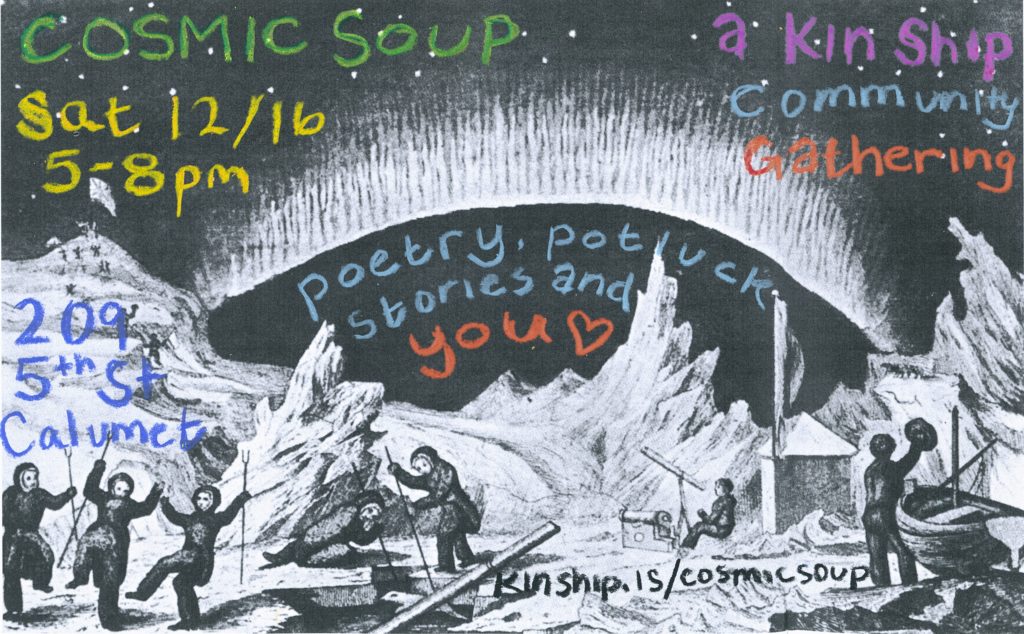 COSMIC SOUP
Sat 12/16
5-8pm
a Kin Ship
Community
Gathering
poetry, potluck
stories and
you ♡
209
5th St
Calumet
kinship.is/cosmicsoup